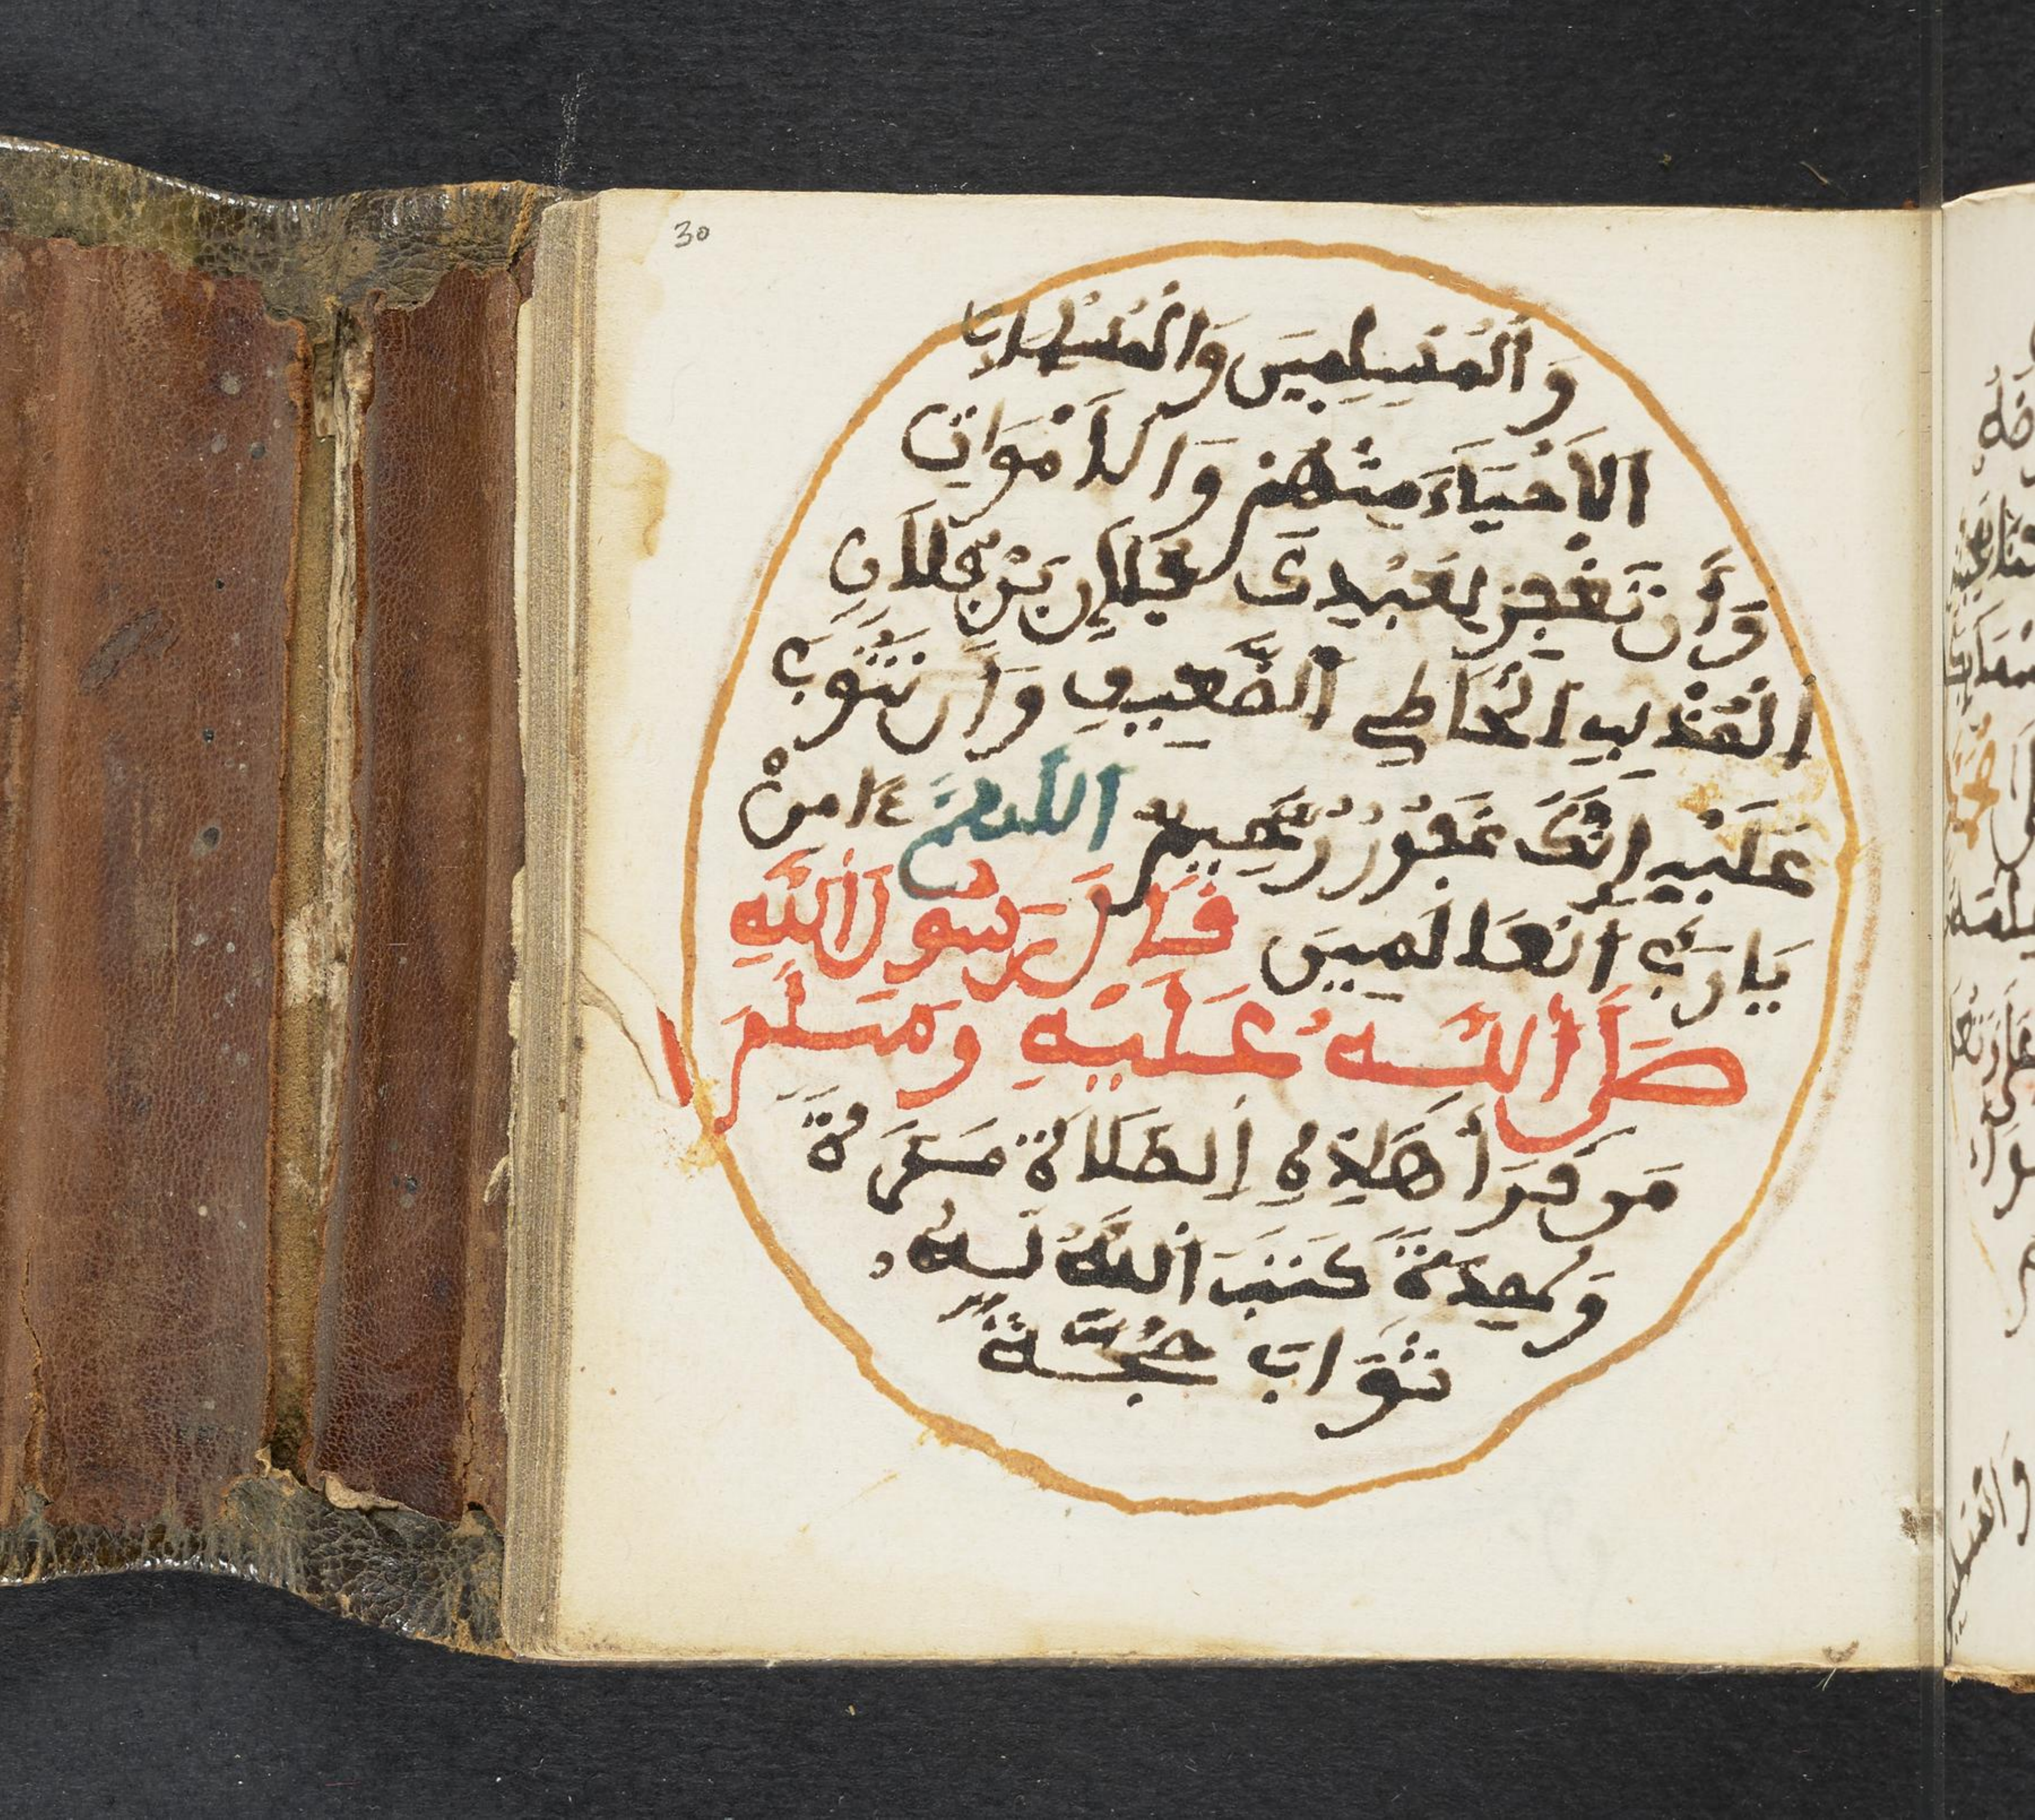 30
وَالْمُسْلِمِينَ وَالْمُسْلِمَاتِ
الْأَحْيَاءِ مِنْهُمْ وَالْأَمْوَاتِ
وَأَن تَغْفِرَ لِعَبْدِكَ فُلَانِ بْنِ فُلَانٍ
الْمُذْنِبِ الْخَاطِي الضَّعِيفِ وَأَن تَتُوبَ
عَلَيْهِ إِنَّكَ غَفُورٌ رَّحِيمٌ اللَّهُمَّ ءَامِنْ
يَا رَبَّ الْعَالَمِينَ قَالَ رَسُولُ اللَّهِ
صَلَّى اللَّهُ عَلَيْهِ وَسَلَّمَ
مَن قَرَأَ هَذِهِ الصَّلَاةَ مَرَّةً
وَاحِدَةً كَتَبَ اللَّهُ لَهُ
ثَوَابَ حَجَّةٍ